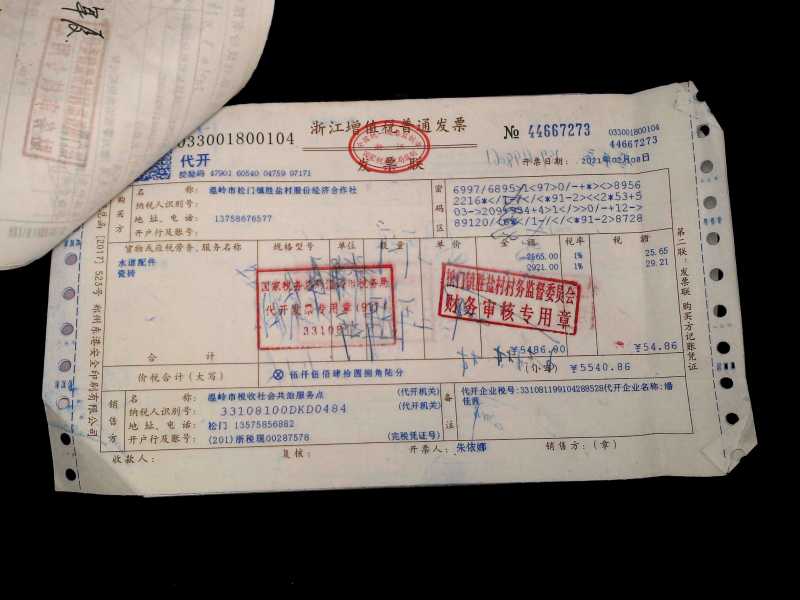 033001800104
浙江增值税普通发票
№ 44667273
033001800104
44667273
代开
发票联
校验码 47901 60540 04759 97171
开票日期: 2021年02月08日
购买方
名 称: 温岭市松门镇胜盐村股份经济合作社
纳税人识别号:
地址、电话: 13758676577
开户行及账号:
密码区
6997/6895>1<97>0/-+*><>8956
03->2099534+4>1</>>0/-+12->
货物或应税劳务、服务名称 规格型号 单位 数量 单价 金额 税率 税额
水道配件 2565.00 1% 25.65
瓷砖 2921.00 1% 29.21
国家税务总局温岭市税务局
代开发票专用章
松门镇胜盐村村务监督委员会
财务审核专用章
合计 ¥5486.00 ¥54.86
价税合计(大写) ⊗ 伍仟伍佰肆拾圆捌角陆分 ¥5540.86
销售方
名 称: 温岭市税收社会共治服务点 (代开机关)
纳税人识别号: 33108100DKD0484 (代开机关)
地址、电话: 松门 13575856882
开户行及账号: (201)浙税现00287578 (完税凭证号)
备注
代开企业税号:331081199104288528代开企业名称:潘
佳茜
收款人: 复核: 开票人: 朱依娜 销售方:(章)
第二联:发票联 购买方记账凭证
[2017] 523号 郑州东港安全印刷有限公司